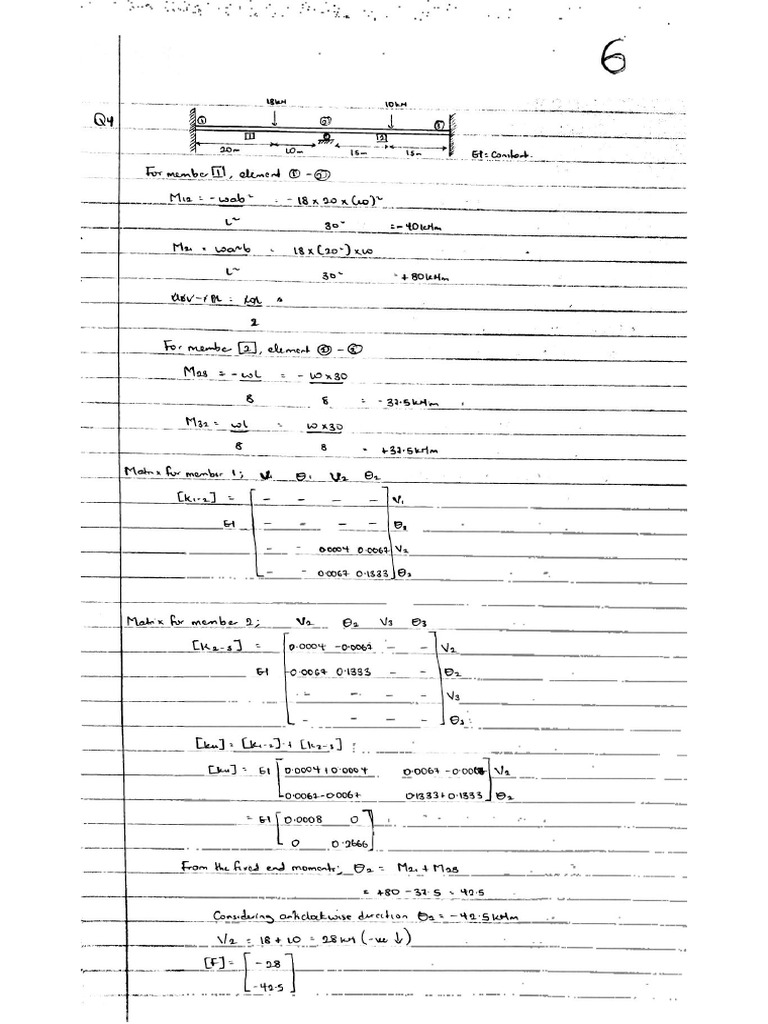 6
18kN 10kN
Q4 ① ② ③
1 2
20m 10m 15m 15m EI = Constant.
For member 1, element ① - ②
M12 = -wab² = -18 x 20 x (10)²
L² 30² = -40kNm
M21 = wa²b = 18 x (20²) x 10
L² 30² = +80kNm
2
For member 2, element ② - ③
M23 = -wL = - 10 x 30
8 8 = -37.5kNm
M32 = wL = 10 x 30
8 8 = +37.5kNm
Matrix for member 1; V1 θ1 V2 θ2
[K1-2] = - - - - V1
EI - - - - θ2
- - 0.0004 0.0067 V2
- - 0.0067 0.1333 θ2
Matrix for member 2; V2 θ2 V3 θ3
[K2-3] = 0.0004 -0.0067 - - V2
EI -0.0067 0.1333 - - θ2
- - - - V3
- - - - θ3
[Ku] = [K1-2] + [K2-3] ;
[Ku] = EI 0.0004+0.0004 0.0067-0.0067 V2
0.0067-0.0067 0.1333+0.1333 θ2
= EI 0.0008 0
0 0.2666
From the fixed end moments; θ2 = M21 + M23
= +80 - 37.5 = 42.5
Considering anticlockwise direction θ2 = -42.5kNm
V2 = 18 + 10 = 28kN (-ve ↓)
[F] = -28
-42.5